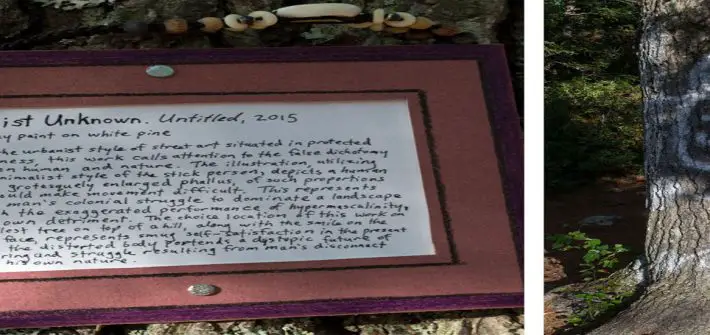 ist Unknown. Untitled, 2015
y paint on white pine
he urbanist style of street art situated in protected
ness, this work calls attention to the false dichotomy
en human and nature. The illustration, utilizing
nimalist style of the stick person, depicts a human
grotesquely enlarged phallus, of such proportions
ould make movement difficult. This represents
man's colonial struggle to dominate a landscape
h the exaggerated performance of hypermasculinity,
own detriment. The choice location of this work on
lest tree on top of a hill, along with the smile on the
face, represents smug self-satisfaction in the present
the distorted body portends a dystopic future of
ring and struggle resulting from man's disconnect
his own nature.